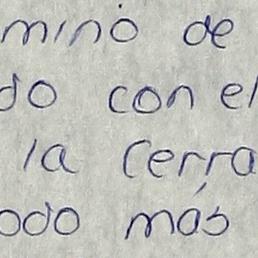 minó de
do con el
la cerra
odo más